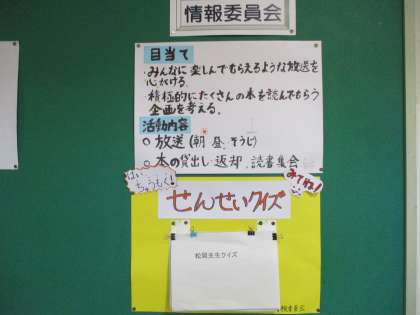 情報委員会
目当て
・みんなに楽しんでもらえるような放送を
心がける。
・積極的にたくさんの本を読んでもらう
企画を考える。
活動内容
○ 放送(朝 昼 そうじ)
○ 本の貸出し 返却、読書集会
はい ちゅうもく!
みてね!
せんせいクイズ
松岡先生クイズ